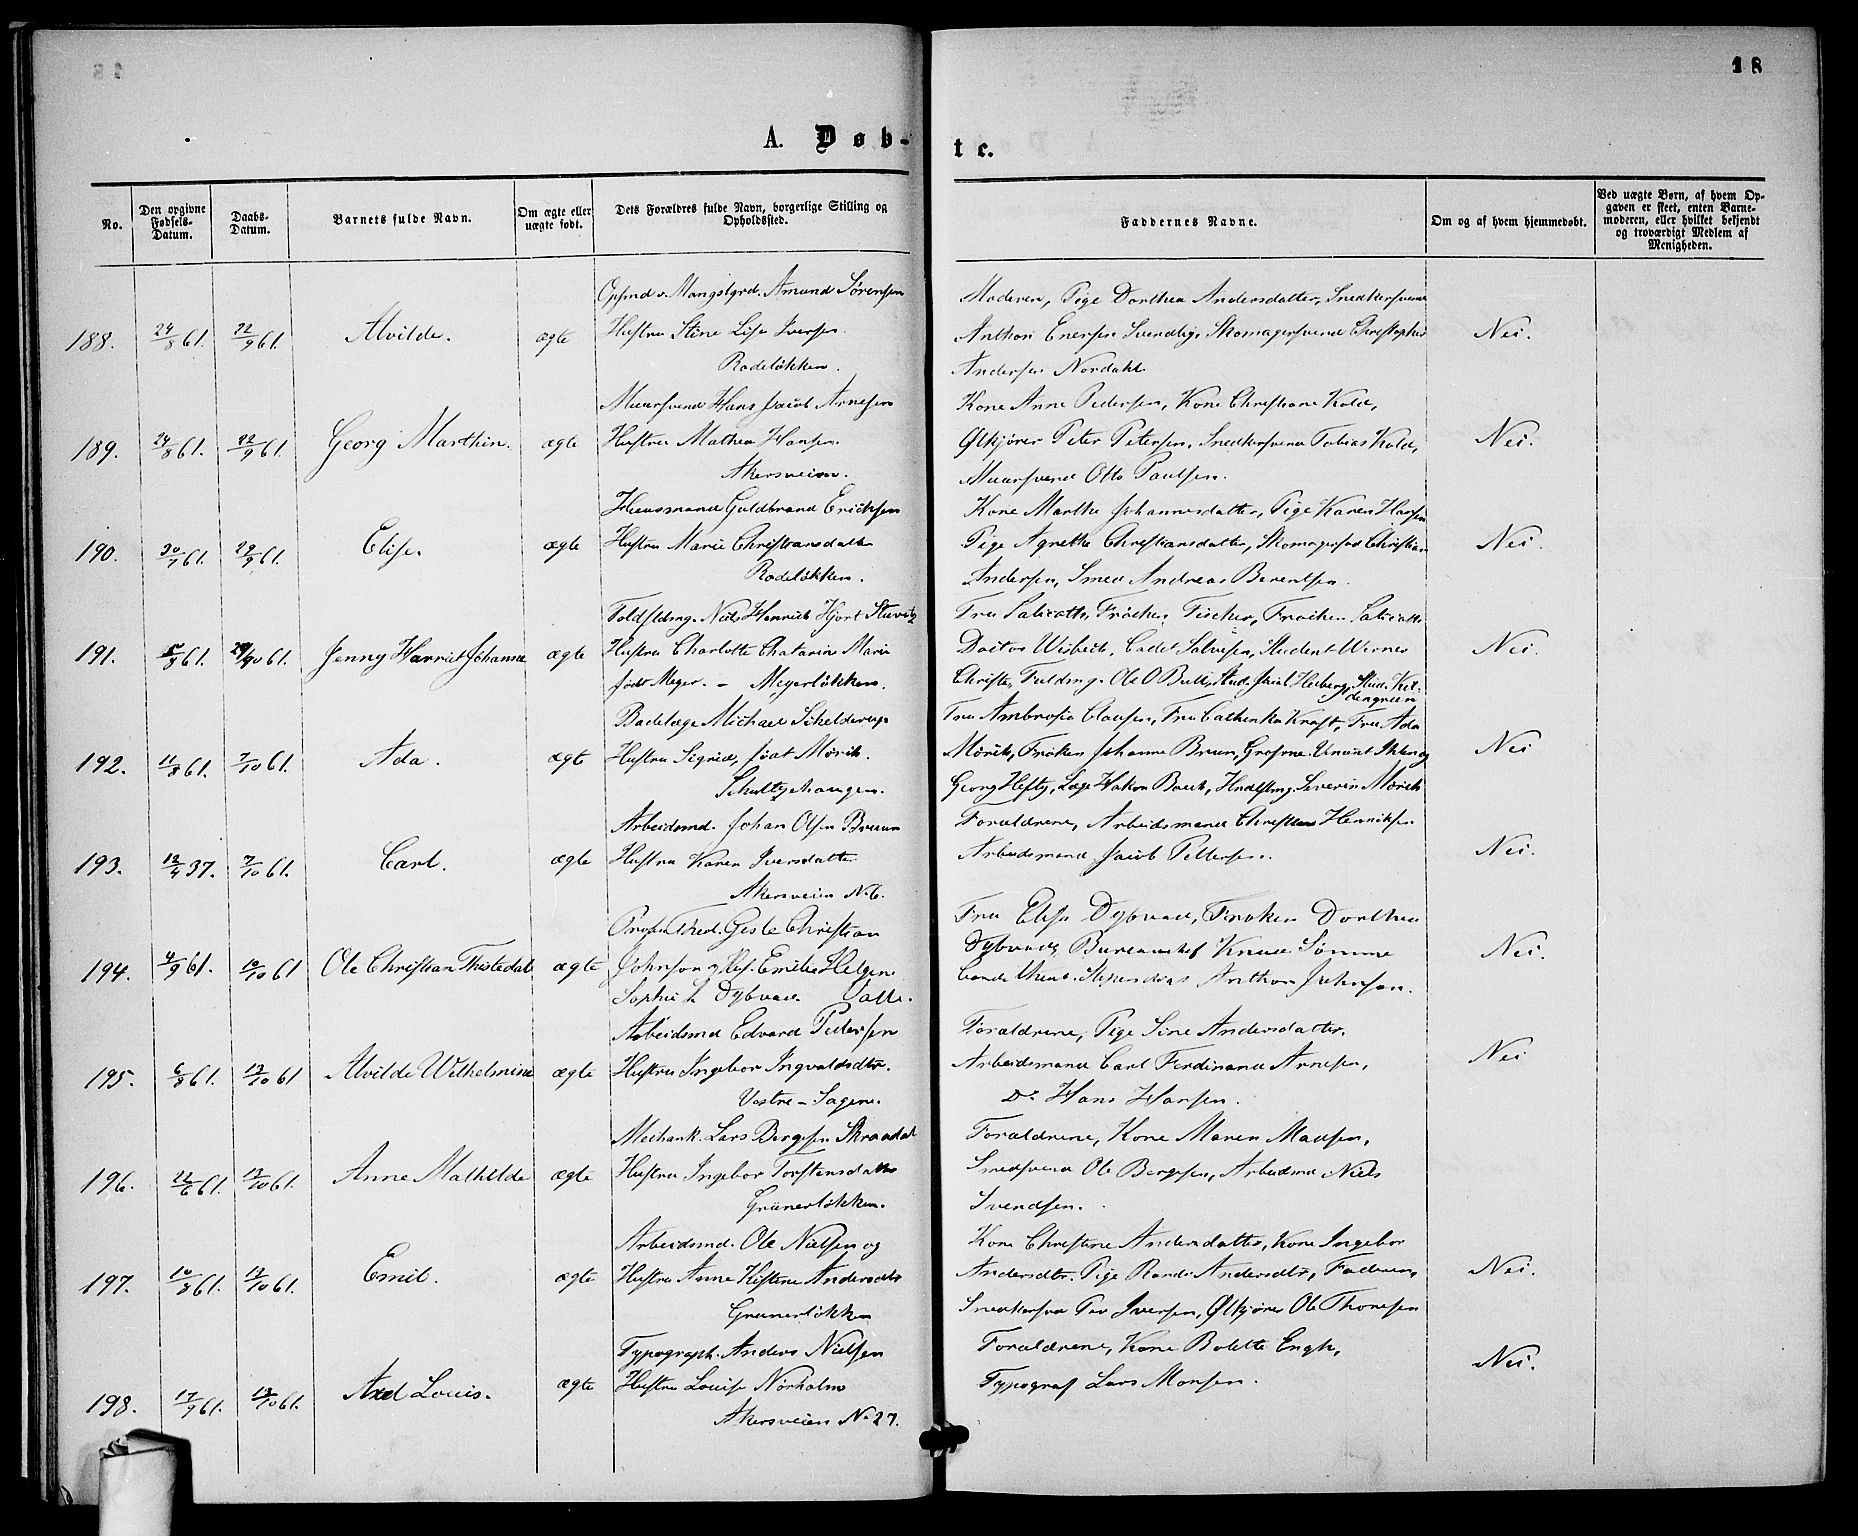 18
A. Døb-
te.
No.
Den opgivne Fødsels-Datum.
Daabs-Datum.
Barnets fulde Navn.
Om ægte eller uægte født.
Dets Forældres fulde Navn, borgerlige Stilling og Opholdssted.
Faddernes Navne.
Om og af hvem hjemmedøbt.
Ved uægte Børn, af hvem Opgaven er skeet, enten Barnemoderen, eller hvilket bekjendt og troværdigt Medlem af Menigheden.
Opsmd v. Mangelgrd. Amund Sørensen
Moderen, Pige Dorthea Andersdatter, Snedkersvend
188. 24/8 61. 22/9 61. Alvilde. ægte Hustru Stine Lise Iversen.
Anthon Enersen Svendby, Skomagersvend Christopher Nei.
Rodeløkken.
Andersen Nordahl
Muursvend Hans Jacob Arnesen
Kone Anne Pedersen, Kone Christiane Kold,
189. 24/8 61. 22/9 61. Georg Marthin. ægte Hustru Mathea Hansen.
Ølkjører Peter Petersen, Snedkersvend Tobias Kold, Nei.
Akersveien.
Muursvend Otto Paulsen.
Huusmand Guldbrand Ericksen
Kone Marthe Johannesdatter, Pige Karen Hansen
190. 30/7 61. 29/9 61. Elise. ægte Hustru Marie Christiansdatter
Pige Agnethe Christiansdatter, Skomagersvd Christian Nei.
Rodeløkken.
Andersen, Smed Andreas Berentsen.
Toldfldmg. Niels Henrich Hjort
Frøken Fischer, Frøken
191. 5/9 61. Jenny Harriet Johanne ægte Hustru Charlotte Chatarine Marie
Doctor Wisbech, Cadet Salvesen, Student Werner Nei.
født Meyer. – Meyerløkken.
Christie, Ole O Bull, Stud. Jacob Heiberg, Stud.
Badelæge Michael Schelderup
Fru Ambrosia Clausen, Fru Cathinka Kraft, Fru Ada
192. 11/8 61. 7/10 61. Ada. ægte Hustru Sigrid, født Mørch.
Mørch, Frøken Johanne Bruun, Nei
Schultzehaugen.
Georg Hefty, Læge Hakon Boeck, Hndlsfldmg. Severin Mørch
Arbeidsmd. Johan Olsen Bruun
Forældrene, Arbeidsmand Christian Henriksen
193. 12/4 37. 7/10 61. Carl. ægte Hustru Karen Iversdatter
Arbeidsmand Jacob Pettersen. Nei.
Akersveien N. 6.
Gisle Christian
Fru Elise Dybvad, Frøken Dorthea
194. 4/9 61. 10/10 61 Ole Christian Thistedal ægte Johnson og Hust. Emilie Helgine
Dybvad, Bureauchef Knud Sømme Nei.
Sophie Dybvad
Cand. theol. Stipendiat Anthon Johnson.
Arbeidsmd Edvard Pedersen
Forældrene, Pige Sine Andersdatter,
195. 6/8 61. 13/10 61 Alvilde Wilhelmine ægte Hustru Ingebor Ingvaldsdtr.
Arbeidsmand Carl Ferdinand Arnesen, Nei
Vestre – Sagene.
Do Hans Hansen.
Mechank. Lars Bergesen
Forældrene, Kone Maren Madsen,
196. 22/6 61. 13/10 61. Anne Mathilde ægte Hustru Ingebor Torstensdatter
Smedsvend Ole Bergesen, Arbeidsmd Niels
Grünerløkken.
Svendsen.
Arbeidsmd. Ole Nielsen og
Kone Christine Andersdatter, Kone Ingebor
197. 10/8 61. 13/10 61. Emil. ægte Hustru Anne Kistine Andersdtr
Andersdtr. Pige Randi Andersdtr, Faderen, Nei.
Grünerløkken
Snedkersvd Per Iversen, Ølkjører Ole Thoresen
Typograph. Anders Nielsen
Forældrene, Kone Bolette Engh,
198. 17/9 61. 13/10 61. Axel Louis. ægte Hustru Louise Norholm
Typograf Lars Monsen. Nei.
Akersveien No 27.